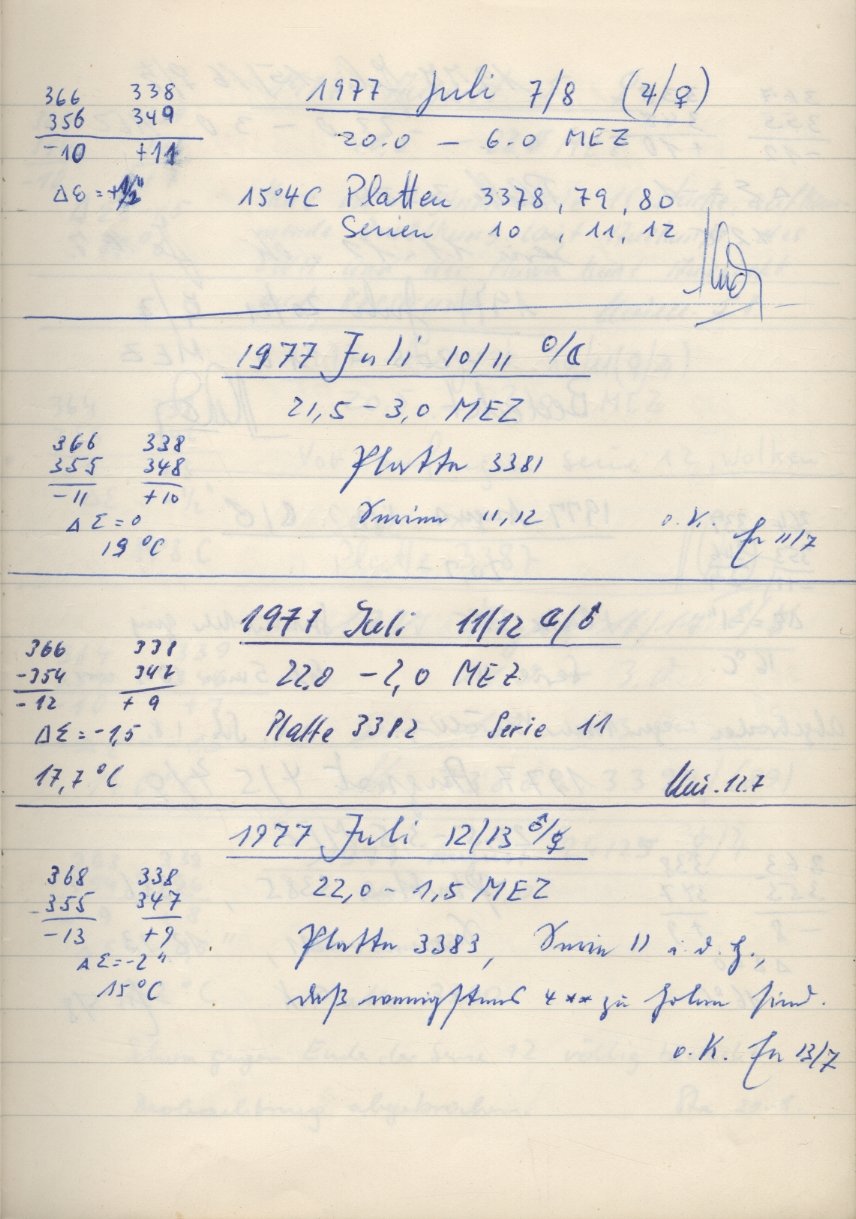 366 338
356 349
-10 +11
Δε = +½"
1977 Juli 7/8 (♃/♀)
20.0 – 6.0 MEZ
15°4C Platten 3378, 79, 80
Serien 10, 11, 12
1977 Juli 10/11 ☉/☾
21,5 – 3,0 MEZ
366 338
355 348
-11 +10
ΔΣ = 0
19 °C
Platte 3381
Serien 11, 12
o. K. 11/7
1977 Juli 11/12 ☾/♂
366 338
-354 347
-12 +9
ΔΣ = -1,5
17,7 °C
22,0 – 2,0 MEZ
Platte 3382 Serie 11
12.7
1977 Juli 12/13 ♂/☿
368 338
-355 347
-13 +9
ΔΣ = -2"
15 °C
22,0 – 1,5 MEZ
Platte 3383, Serie 11 i. d. H.,
daß wenigstens 4 ** zu holen sind.
o. K. 13/7